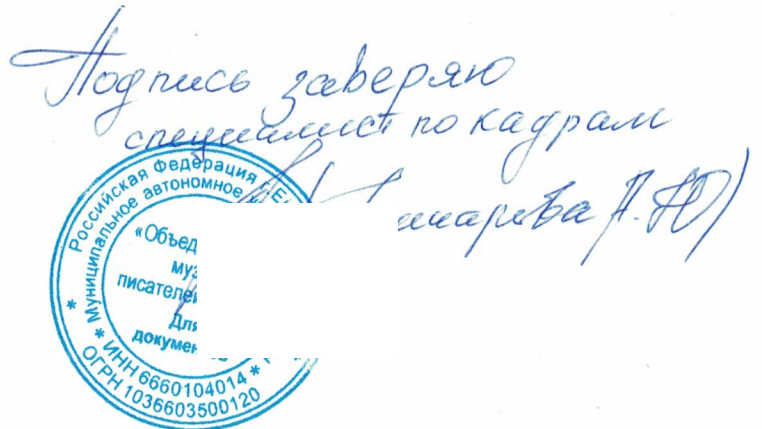 Подпись заверяю
специалист по кадрам
А.Ю)
Российская Федерация
Муниципальное автономное
«Объед
муз
писателей
Для
докумен
* ИНН 6660104014 *
ОГРН 1036603500120